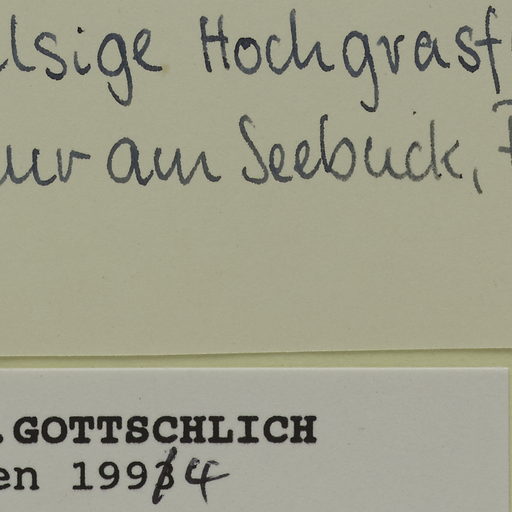 lsige Hochgrasf
ur am Seebuck,
.GOTTSCHLICH
en 1994